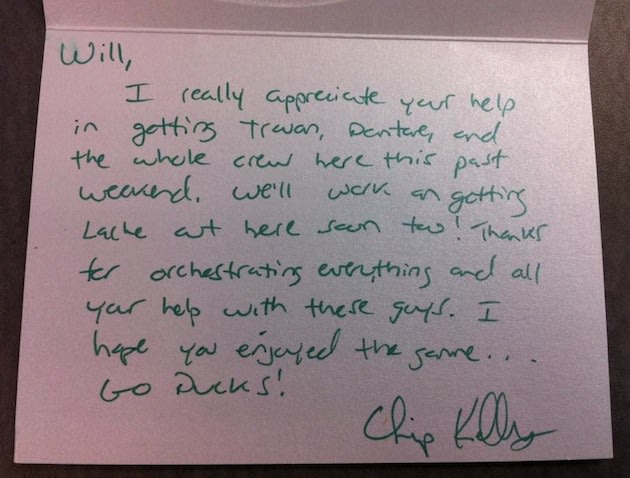 Will,
I really appreciate your help
in getting Trovon, Dontae, and
the whole crew here this past
weekend. We'll work on getting
Lache out here soon too! Thanks
for orchestrating everything and all
your help with these guys. I
hope you enjoyed the game...
GO DUCKS!
Chip Kelly